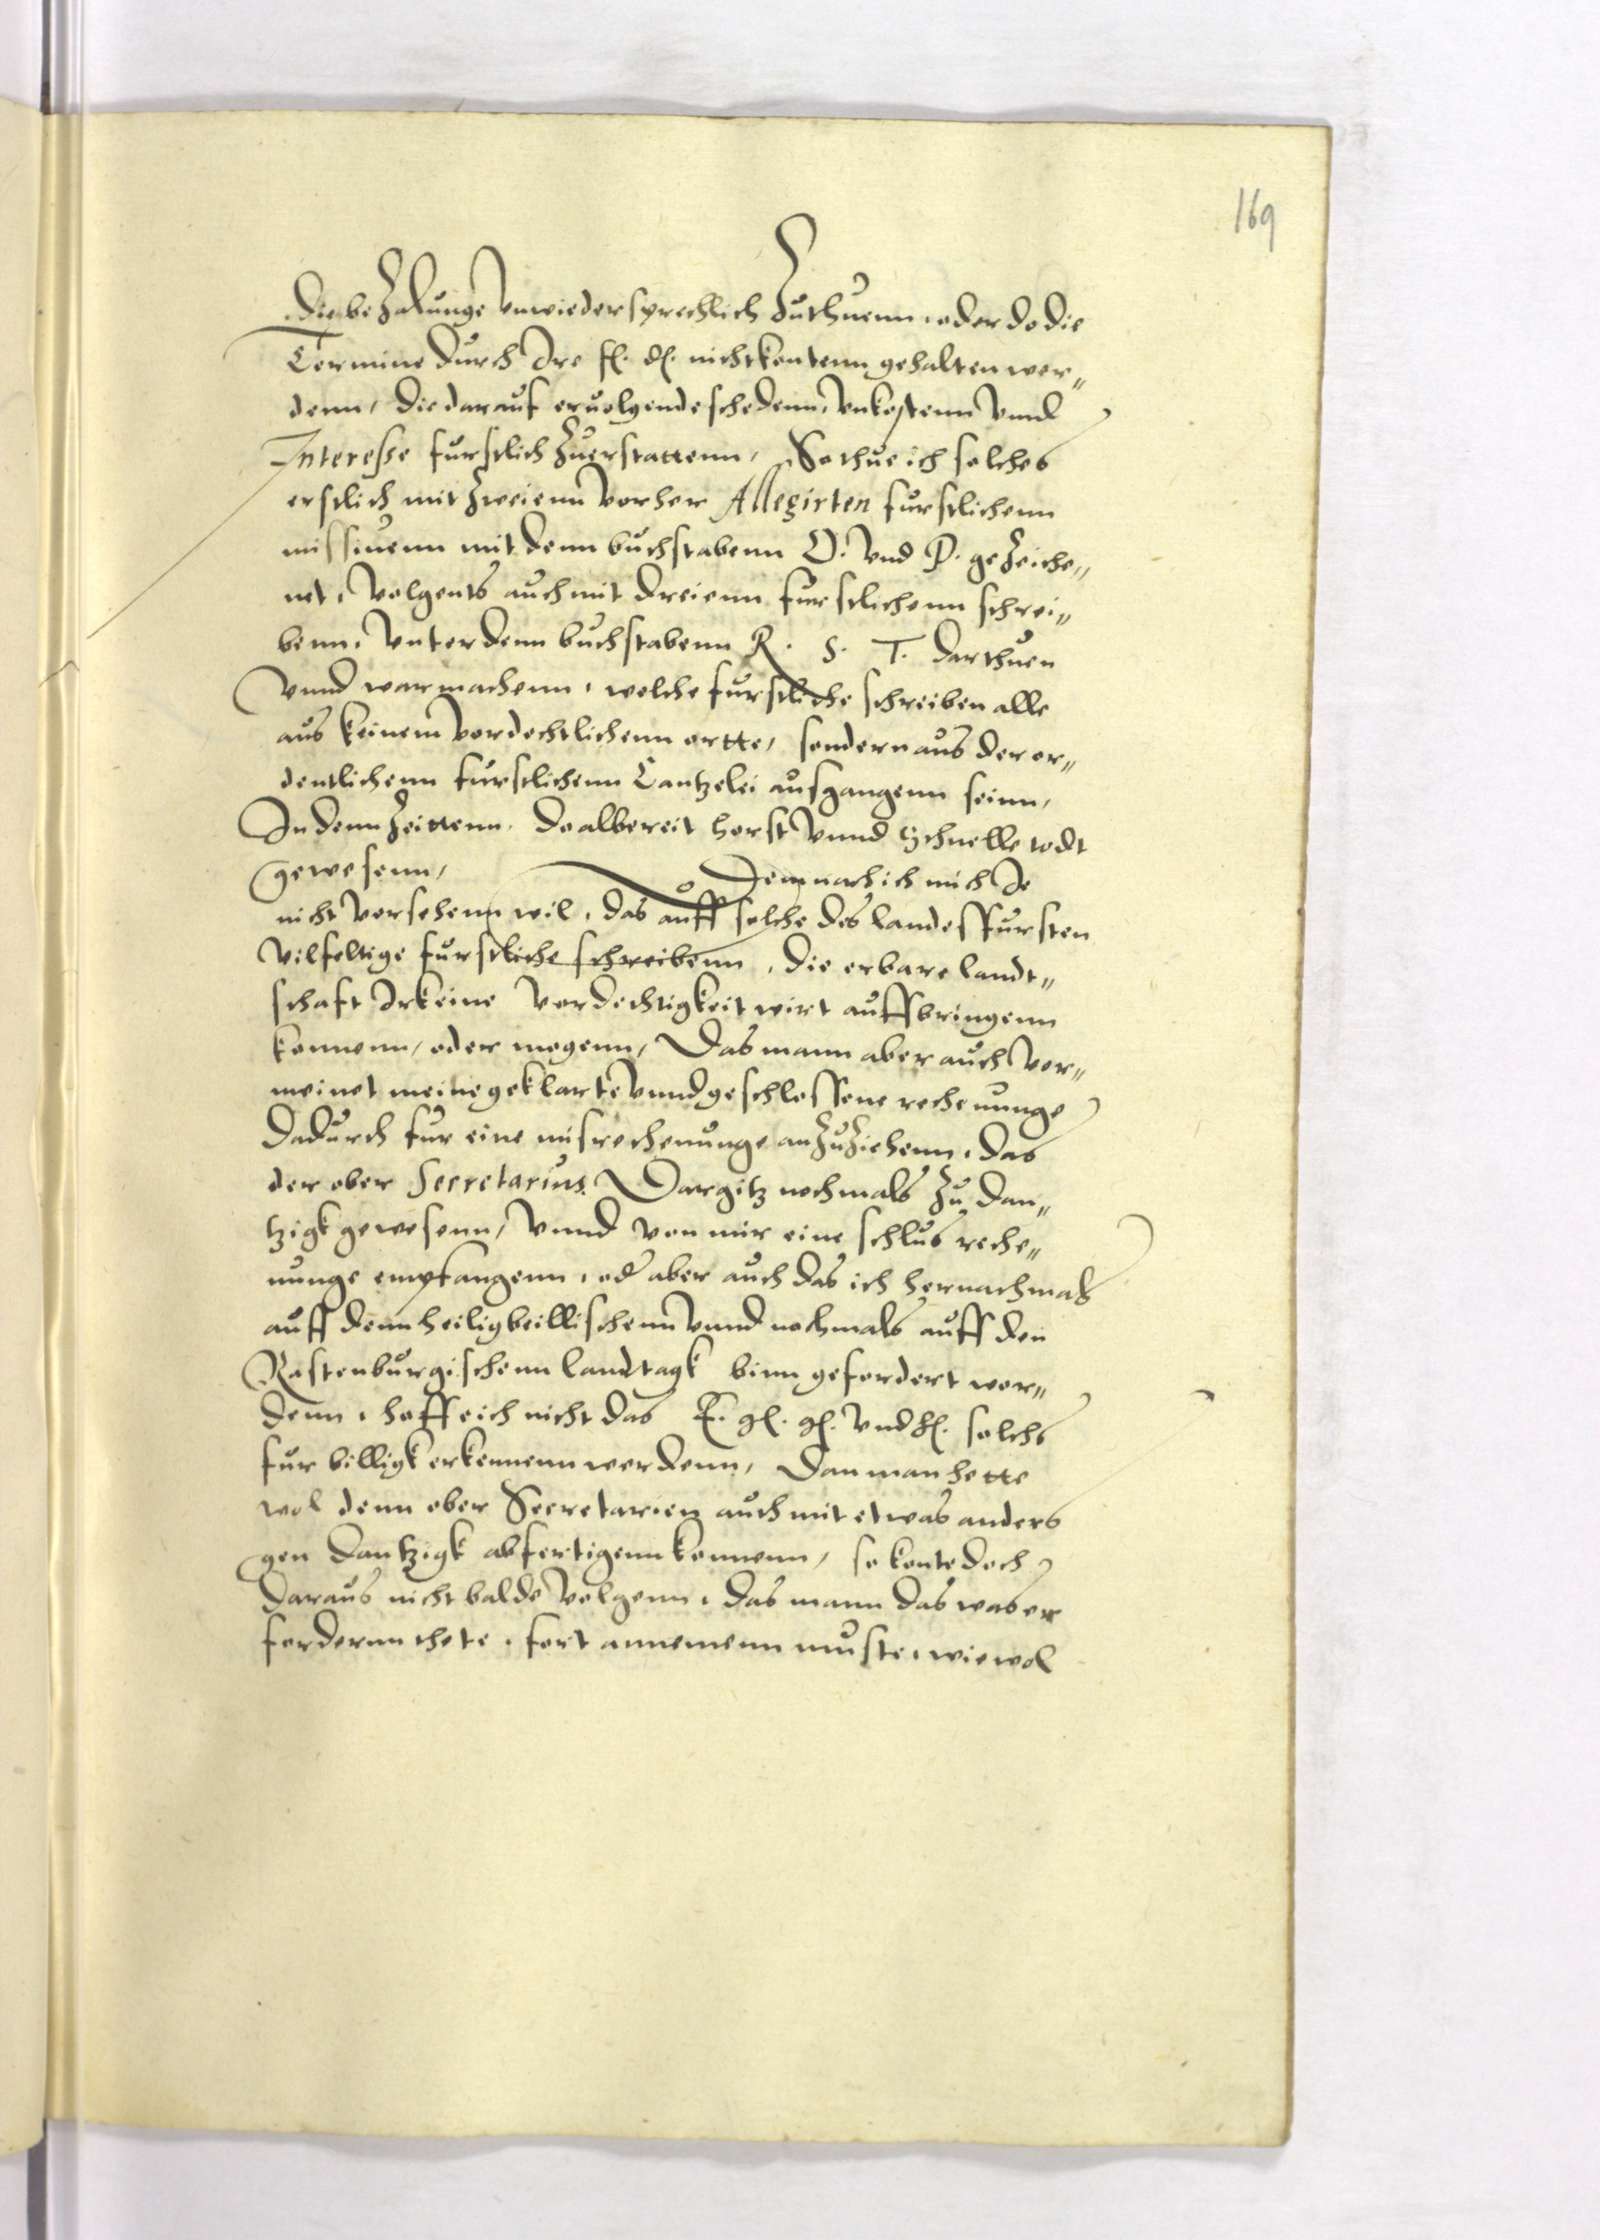 169
die bezalunge vnwiedersprechlich zuthuenn, oder do die
Termine durch Ire fl. dl. nicht kontenn gehalten wer„
denn, die darauf eruolgende schedenn, vnkostenn vnnd
Interesse furstlich zuerstattenn, So thue ich solches
erstlich mit zweienn vorher Allegirten furstlichenn
missiuenn mit denn buchstabenn O. vnd P. gezeiche„
net, volgents auch mit dreienn furstlichenn schrei„
benn, vnter denn buchstabenn R. S. T. darthuen
vnnd war machenn, welche furstliche schreiben alle
aus keinem vordechtlichenn ortte, sondern aus der or„
dentlichenn furstlichenn Cantzelei ausgangenn seinn,
In denn zeittenn, do albereit horst vnnd Schnelle todt
gewesenn, Demnach ich mich Je
nicht vorsehenn wil, das auff solche des landesfursten
vilfeltige furstliche schreibenn, die erbare landt„
schaft Irkeine vordechtigkeit wirt auffbringenn
konnenn, oder mogenn, Das mann aber auch vor„
meinet meine geklarte vnnd geschlossene rechenunge
dadurch fur eine misrechenunge anzuziehenn, das
der ober Secretarius Dargitz nochmals zu Dan„
tzigk gewesenn, vnnd von mir eine schlus reche„
nunge empfangenn, od aber auch das ich hernachmals
auff denn heiligbeillischenn vnnd nochmals auff den
Rastenburgischenn landtagk binn gefordert wor„
denn, hoffe ich nicht das E. gl. gl. vnd hl. solchs
fur billigk erkennenn werdenn, Dan man hette
wol denn ober Secretarien auch mit etwas anders
gen Dantzigk abfertigenn konnenn, so konte doch
daraus nicht balde volgenn, das mann das was er
fordernn thete, fort annemenn muste, wiewol